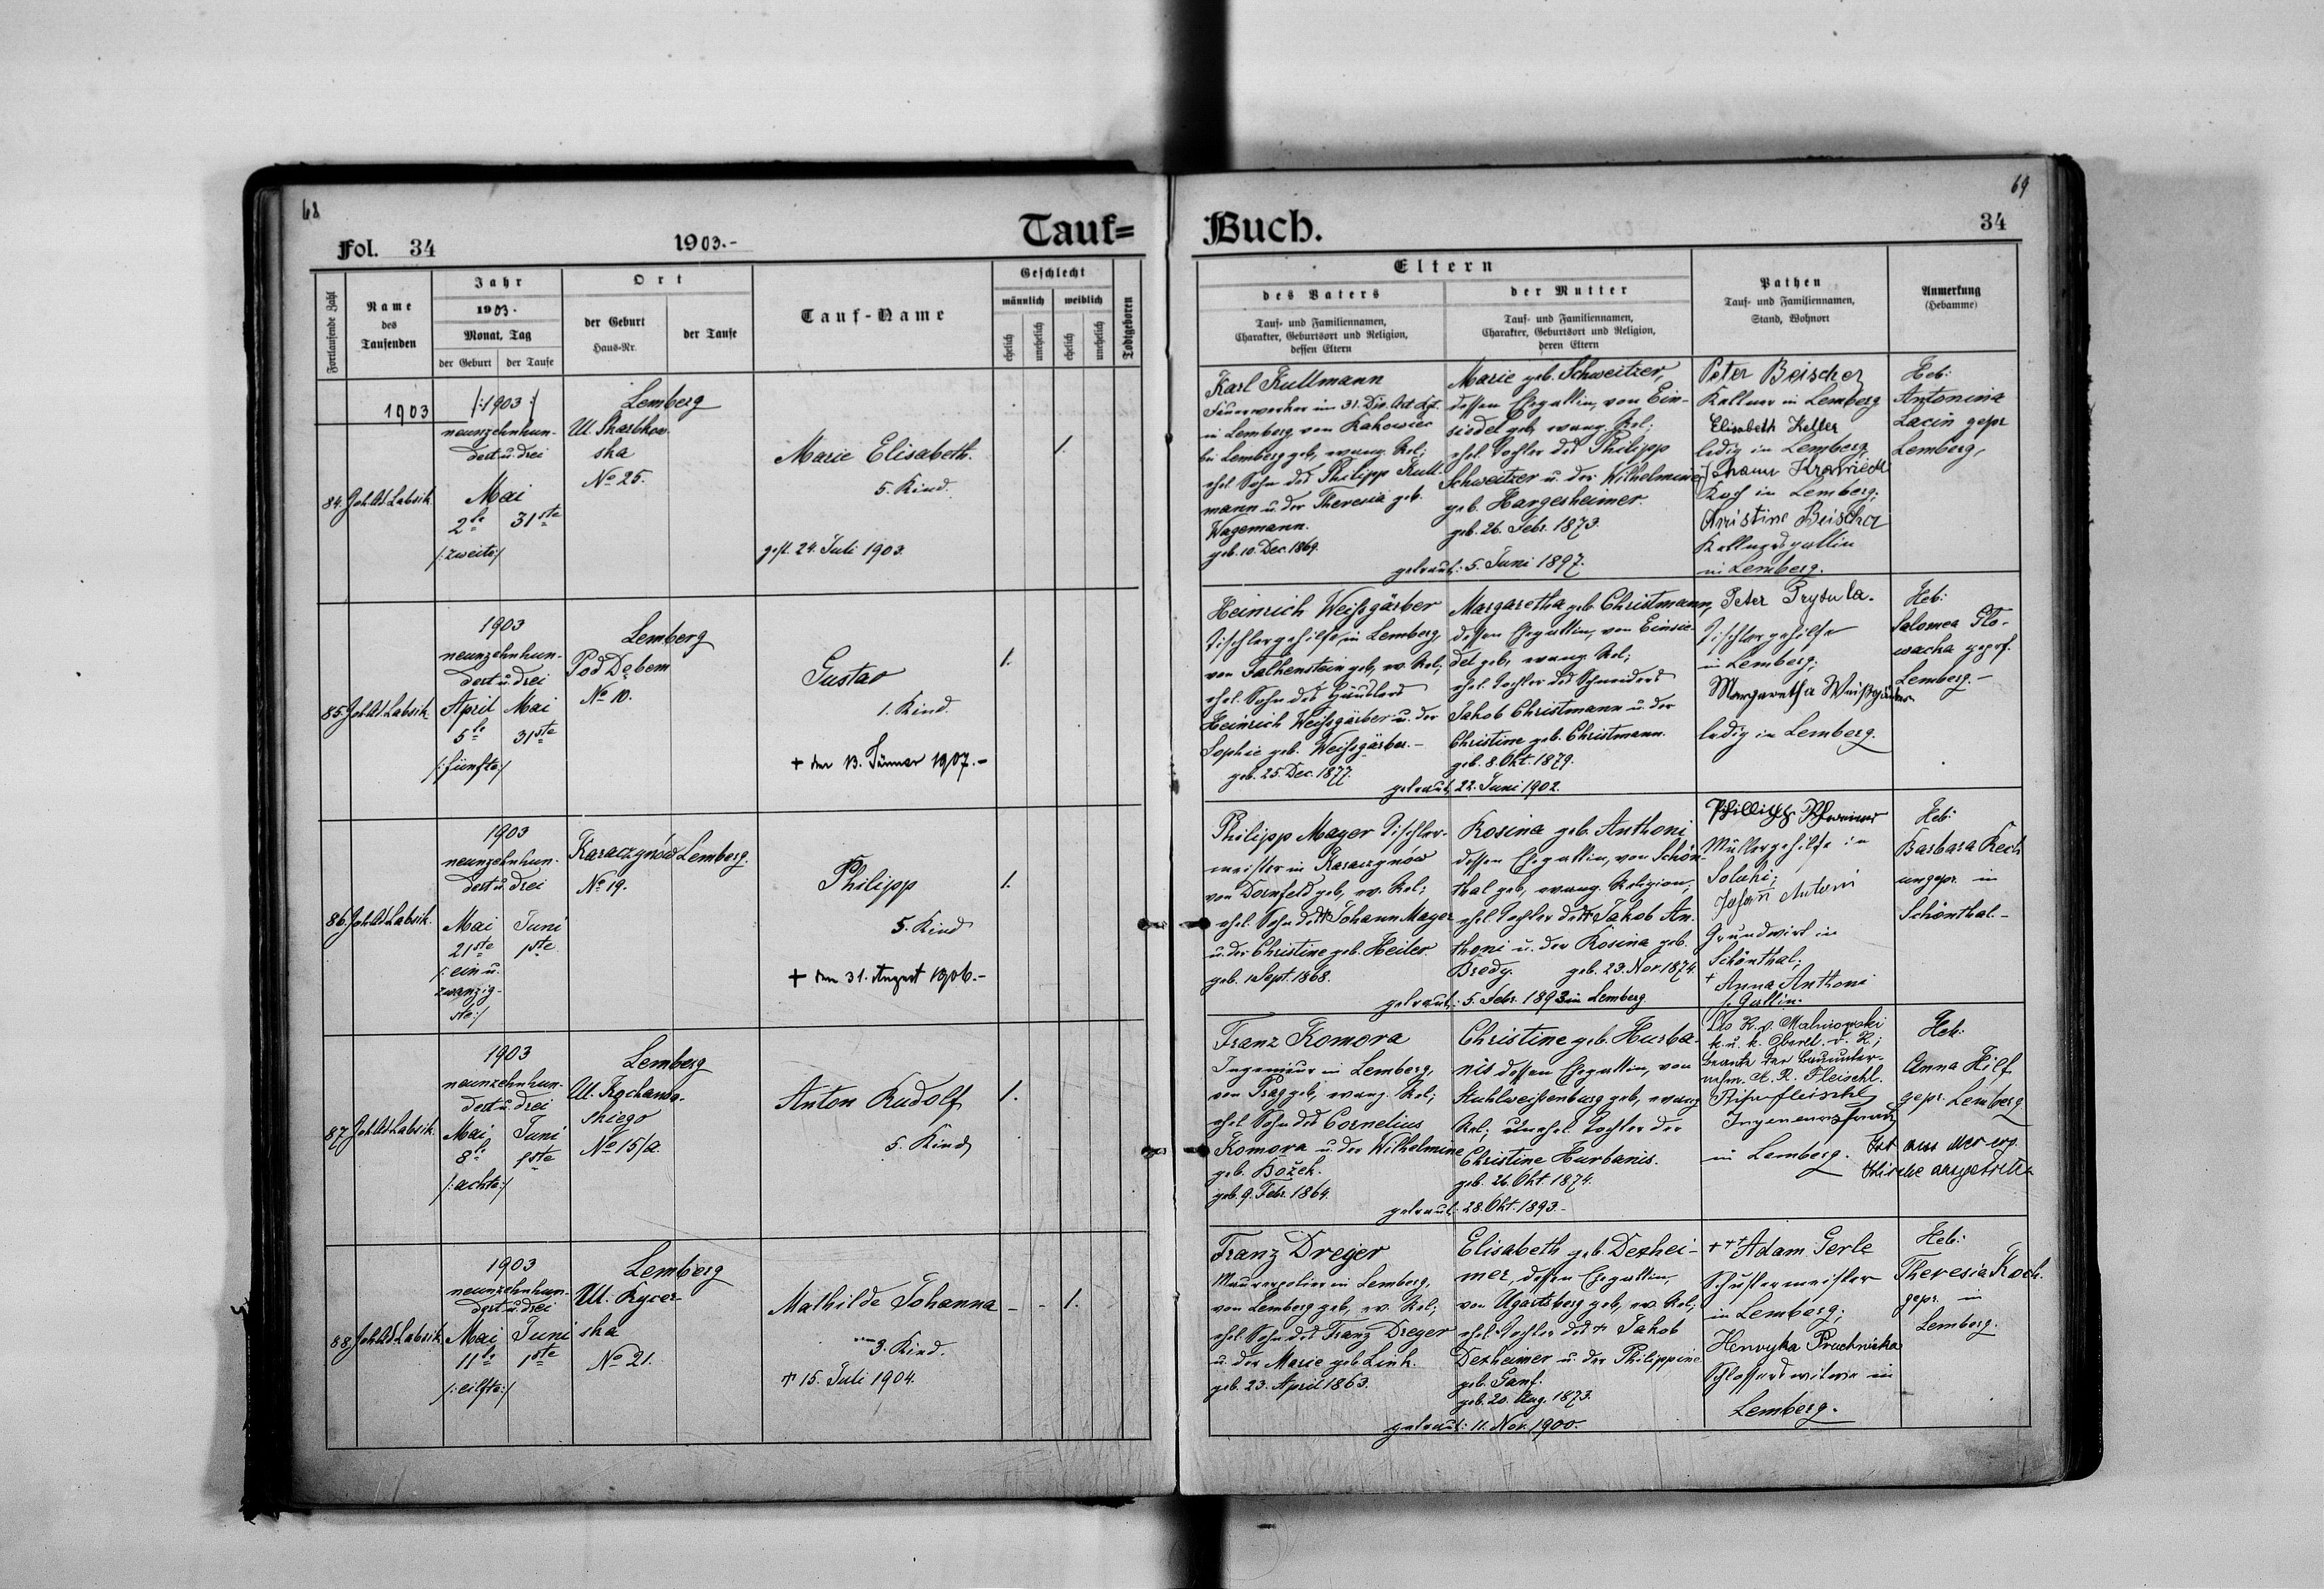 68
Fol. 34
1903.-
Tauf=
Fortlaufende Zahl
Name
des
Taufenden
Jahr
1903.
Monat, Tag
der Geburt
der Taufe
Ort
der Geburt
Haus-Nr.
der Taufe
Tauf-Name
Geschlecht
männlich
weiblich
ehelich
unehelich
ehelich
unehelich
Todtgeboren
1903
84. Joh. Ad. Labsik
/:1903:/
neunzehnhun-
dert u. drei
Mai
2te 31ste
/:zweite:/
Lemberg
Ul. Skarbkow-
ska
No 25.
Marie Elisabeth.
5. Kind.
gest. 24. Juli 1903.
1.
85. Joh. Ad. Labsik
1903
neunzehnhun-
dert u. drei
April Mai
5te 31ste
/:fünfte:/
Lemberg
Pod Dębem
No 10.
Gustav
1. Kind.
+ den 13. Jänner 1907.-
1.
86. Joh. Ad. Labsik.
1903
neunzehnhun-
dert u. drei
Mai Juni
21ste 1ste
/:ein u.
zwanzig-
ste:/
Karaczynów Lemberg.
No 19.
Philipp
5. Kind
+ den 31. August 1906.-
1.
87. Joh. Ad. Labsik.
1903
neunzehnhun-
dert u. drei
Mai Juni
8te 1ste
/:achte:/
Lemberg
Ul. Kochanow-
skiego
No 15/a.
Anton Rudolf
5. Kind
1.
88. Joh. Ad. Labsik
1903
neunzehnhun-
dert u. drei
Mai Juni
11te 1ste
/:eilfte:/
Lemberg
Ul. Rycer-
ska
No 21.
Mathilde Johanna
3. Kind.
+ 15. Juli 1904.
- - 1.
69
Buch.
34
Eltern
des Vaters
Tauf- und Familiennamen,
Charakter, Geburtsort und Religion,
dessen Eltern
der Mutter
Tauf- und Familiennamen,
Charakter, Geburtsort und Religion,
deren Eltern
Pathen
Tauf- und Familiennamen,
Stand, Wohnort
Anmerkung
(Hebamme)
Karl Kullmann
Feuerwerker im 31. Div. Art. Rgt.
in Lemberg von Rakowiec
bei Lemberg geb, evang. Rel;
ehel. Sohn des Philipp Kull-
mann u. der Theresia geb.
Wagemann.
geb. 10. Dec. 1869.
Marie geb. Schweitzer,
dessen Ehegattin, von Ein-
siedel geb, evang. Rel;
ehel. Tochter des Philipp
Schweitzer u. der Wilhelmine
geb. Hargesheimer.
geb. 26. Febr. 1873.
getraut: 5. Juni 1897.
Peter Beischer
Kellner in Lemberg
Elisabeth Keller
ledig in Lemberg
Johann
Koch in Lemberg;
Christine Beischer
Kellnersgattin
in Lemberg.
Heb:
Antonina
Lacin gepr
Lemberg,
Heinrich Weißgärber
Tischlergehilfe, in Lemberg,
von Falkenstein geb, ev. Rel;
ehel. Sohn des Häuslers
Heinrich Weißgärber u. der
Sophie geb. Weißgärber.-
geb. 25. Dec. 1877.
Margaretha geb. Christmann,
dessen Ehegattin, von Einsie-
del geb, evang. Rel;
ehel. Tochter des Schneiders
Jakob Christmann u. der
Christine geb. Christmann.
geb. 8. Okt. 1879.
getraut 22. Juni 1902.
Peter Prytula.
Tischlergehilfe
in Lemberg;
Margaretha Weißgärber
ledig in Lemberg.
Heb:
Salomea Glo-
wacka geprf.
Lemberg.-
Philipp Mayer Tischler-
meister in Karaczynów
von Dornfeld geb, ev. Rel;
ehel. Sohn des + Johann Mayer
u. der Christine geb. Heiler.
geb. 1. Sept. 1868.
Rosina geb. Anthoni
dessen Ehegattin, von Schön-
thal geb, evang. Religion,
ehel. Tochter des + Jakob An-
thoni u. der Rosina geb.
Brody. geb. 23. Nov 1874.
getraut: 5. Febr. 1893 in Lemberg.
Müllergehilfe in
Johann Antoni
Grundwirt in
Schönthal;
+ Anna Anthoni
s. Gattin.
Heb:
Barbara Kech
ungepr. in
Schönthal-
Franz Komora
Ingenieur in Lemberg,
von Prag geb, evang. Rel;
ehel. Sohn des Cornelius
Komora u. der Wilhelmine
geb. Božek.
geb. 9. Febr. 1864.
Christine geb. Hurba-
nis dessen Ehegattin, von
Stuhlweißenburg geb, evang
Rel; unehel. Tochter der
Christine Hurbanis.
geb. 26. Okt. 1874.
getraut: 28. Okt. 1893.-
k. u. k. Oberst. d. R.;
A. R. Fleischl.
Fleischl
in Lemberg.
Heb:
Anna Hilf
gepr. Lemberg
Ist aus der evg.
Kirche ausgetreten
Franz Dreyer
Maurerpolier in Lemberg,
von Lemberg geb, ev. Rel;
ehel. Sohn des Franz Dreyer
u. der Marie geb. Link.
geb. 23. April 1863.
Elisabeth geb. Dexhei-
mer, dessen Ehegattin,
von Ugartsberg geb, ev. Rel;
ehel. Tochter des + Jakob
Dexheimer u. der Philippine
geb. Ganf.
geb. 20. Aug. 1873.
getraut: 11. Nov. 1900.
+++ Adam Gerle
Schustermeister
in Lemberg;
Henryka Pruchnicka
Schlosserswitwe in
Lemberg.
Heb:
Theresia Koch.
gepr. in
Lemberg.